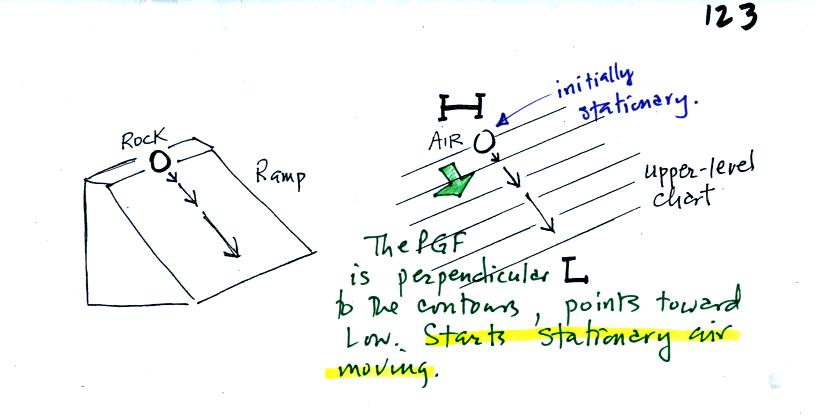 123
initially
stationary.
H
ROCK
AIR
Ramp
upper-level
chart
The PGF
is perpendicular L
to the contours, points toward
Low. Starts stationary air
moving.